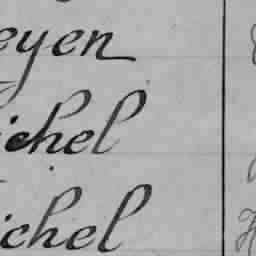 eyen
ichel
ichel